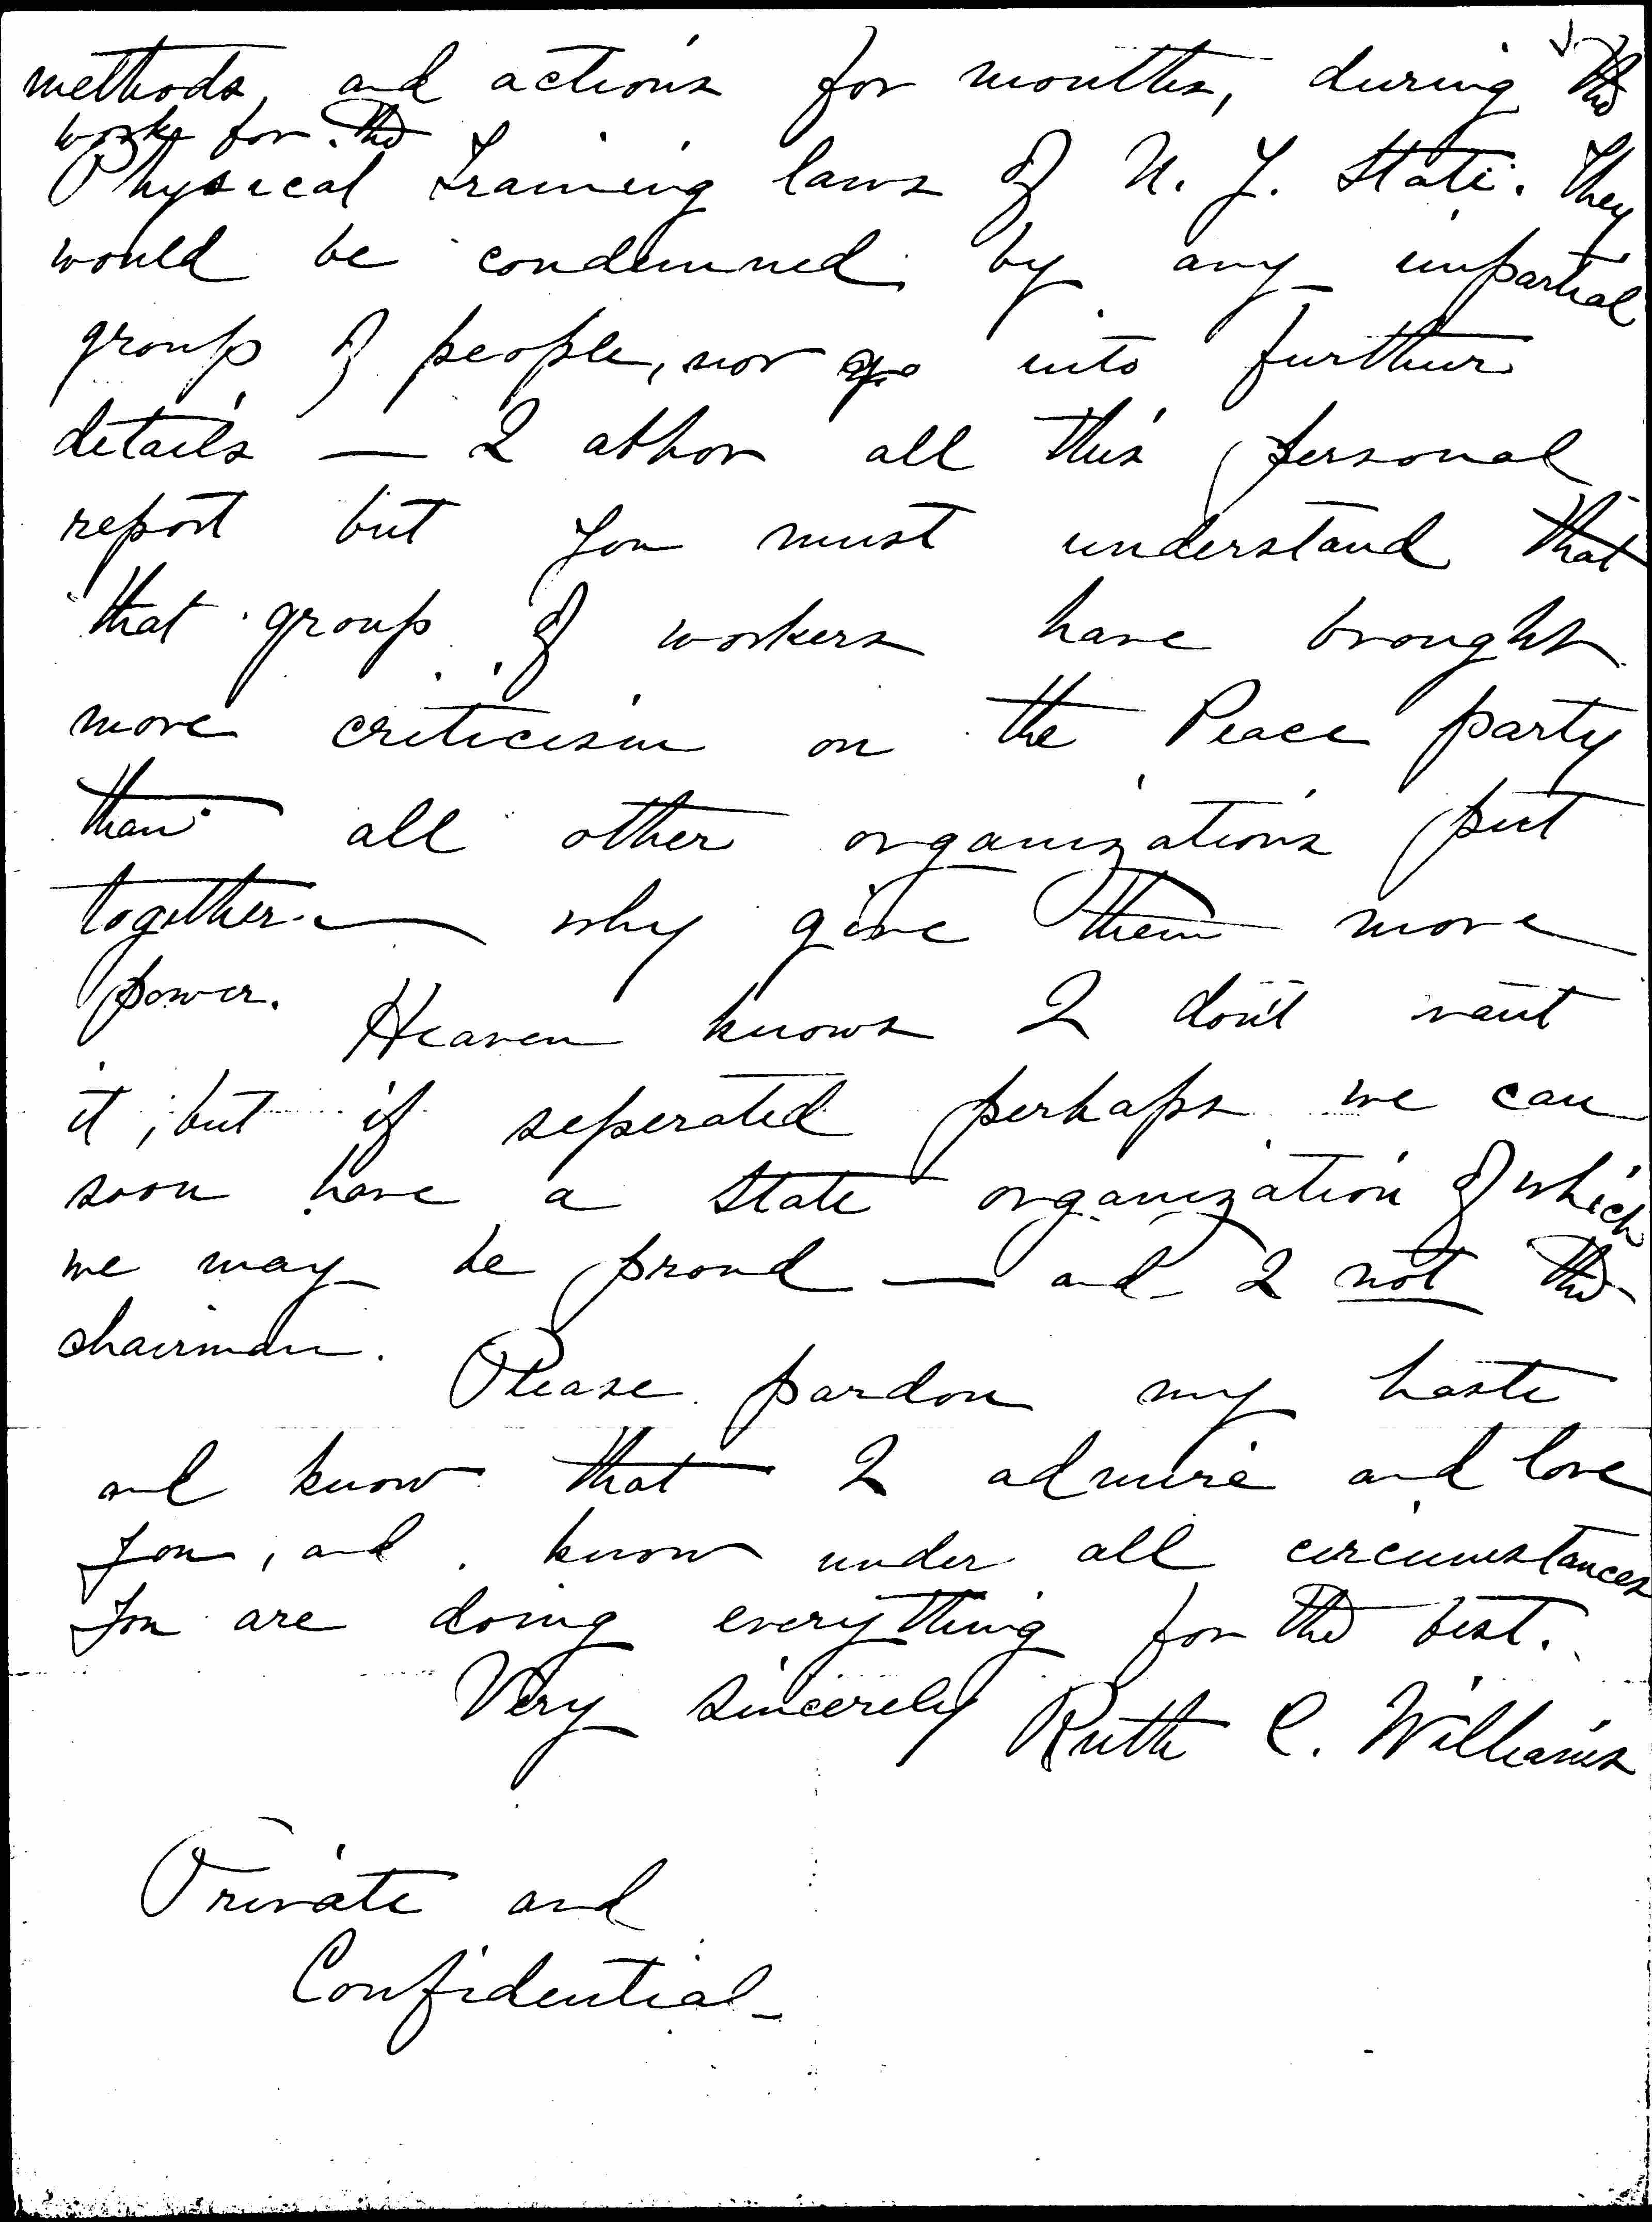 methods, and actions for months, during the
work for the
Physical Training laws of N. Y. State. They
would be condemned by any impartial
group of people, nor go into further
details — I abhor all this personal
report but you must understand that
that group of workers have brought
more criticism on the Peace party
than all other organizations put
together — why give them more
power. Heaven knows I don't want
it, but if seperated perhaps we can
soon have a State organization of which
we may be proud — and I not the
chairman. Please pardon my haste
and know that I admire and love
you, and know under all circumstances
you are doing everything for the best.
Very sincerely Ruth C. Williams
Private and
Confidential —